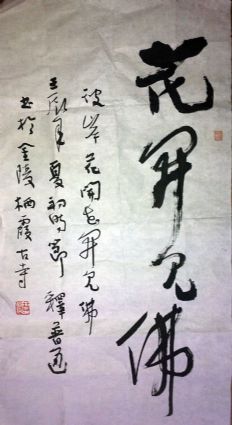 花开见佛
彼岸花開花开见佛
壬辰年夏初时節 釋普通
书於金陵栖霞古寺